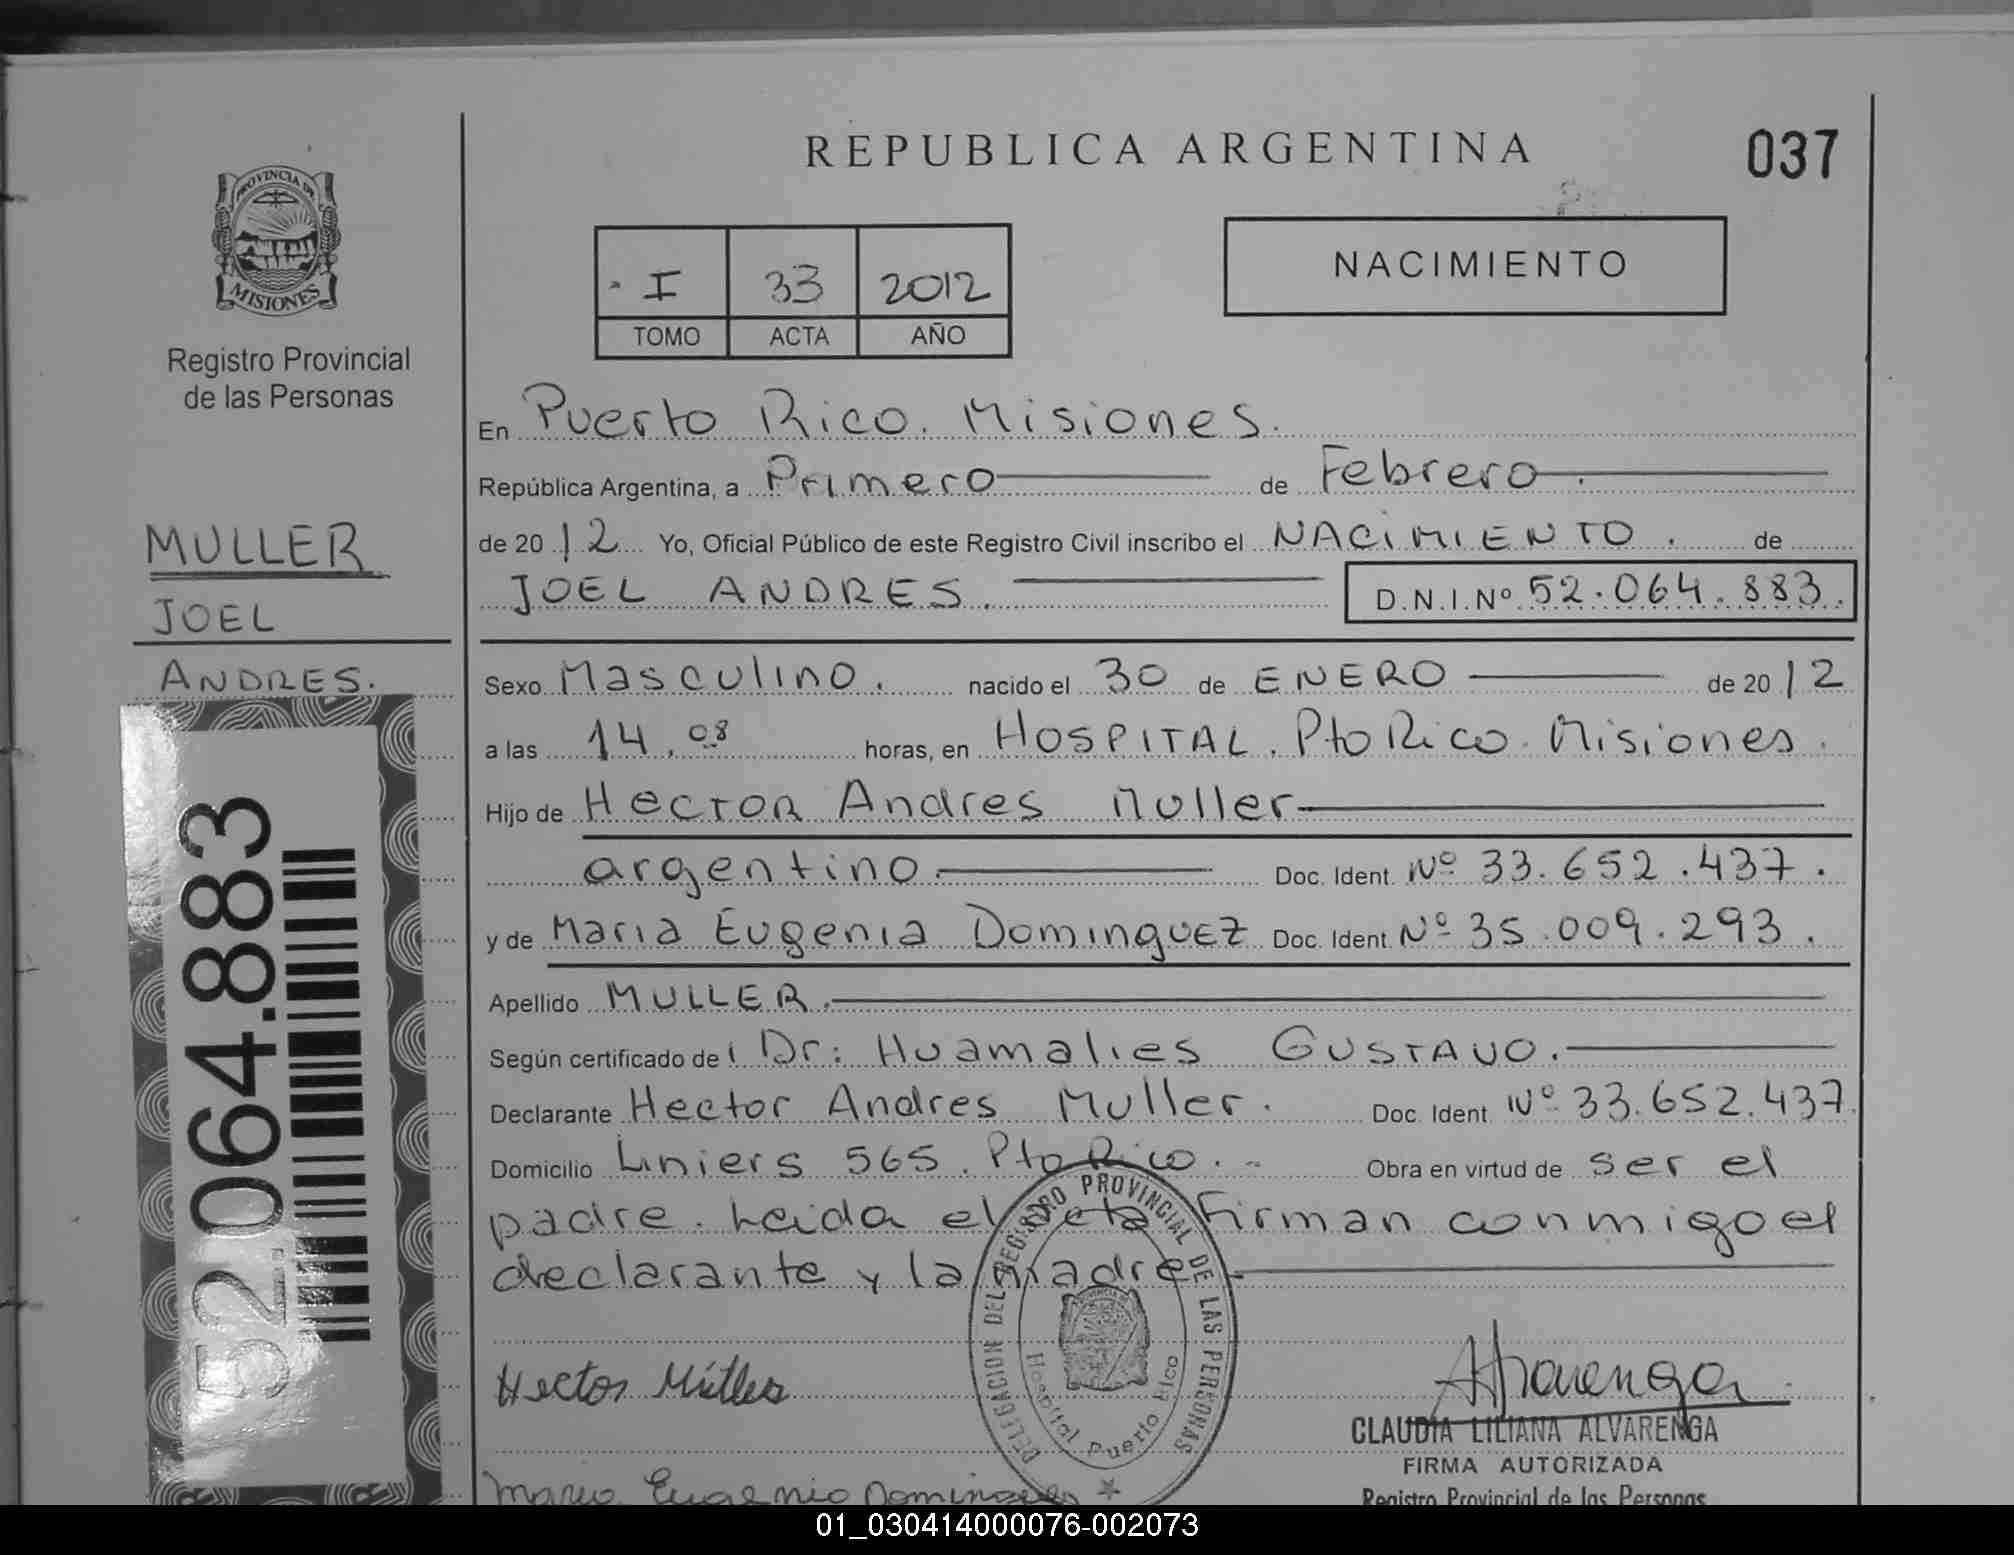 REPUBLICA ARGENTINA
037
PROVINCIA DE
MISIONES
Registro Provincial
de las Personas
I 33 2012
TOMO ACTA AÑO
NACIMIENTO
En Puerto Rico. Misiones.
República Argentina, a Primero de Febrero
de 2012 Yo, Oficial Público de este Registro Civil inscribo el NACIMIENTO. de
JOEL ANDRES. D.N.I.Nº 52.064.883.
MULLER
JOEL
ANDRES.
52.064.883
Sexo Masculino. nacido el 30 de ENERO de 2012
a las 14.08 horas, en HOSPITAL. Pto Rico. Misiones.
Hijo de Hector Andres Muller
argentino. Doc. Ident. Nº 33.652.437.
y de Maria Eugenia Dominguez Doc. Ident. Nº 35.009.293.
Apellido MULLER.
Según certificado de Dr: Huamalies GUSTAVO.
Declarante Hector Andres Muller. Doc. Ident Nº 33.652.437.
Domicilio Liniers 565. Pto Rico. Obra en virtud de ser el
padre. Leida el acta Firman conmigo el
declarante y la madre
DELEGACION DEL REGISTRO PROVINCIAL DE LAS PERSONAS
Hospital Puerto Rico
Hector Müller
Alvarenga
CLAUDIA LILIANA ALVARENGA
FIRMA AUTORIZADA
Registro Provincial de las Personas
Maria Eugenia Dominguez
01_030414000076-002073